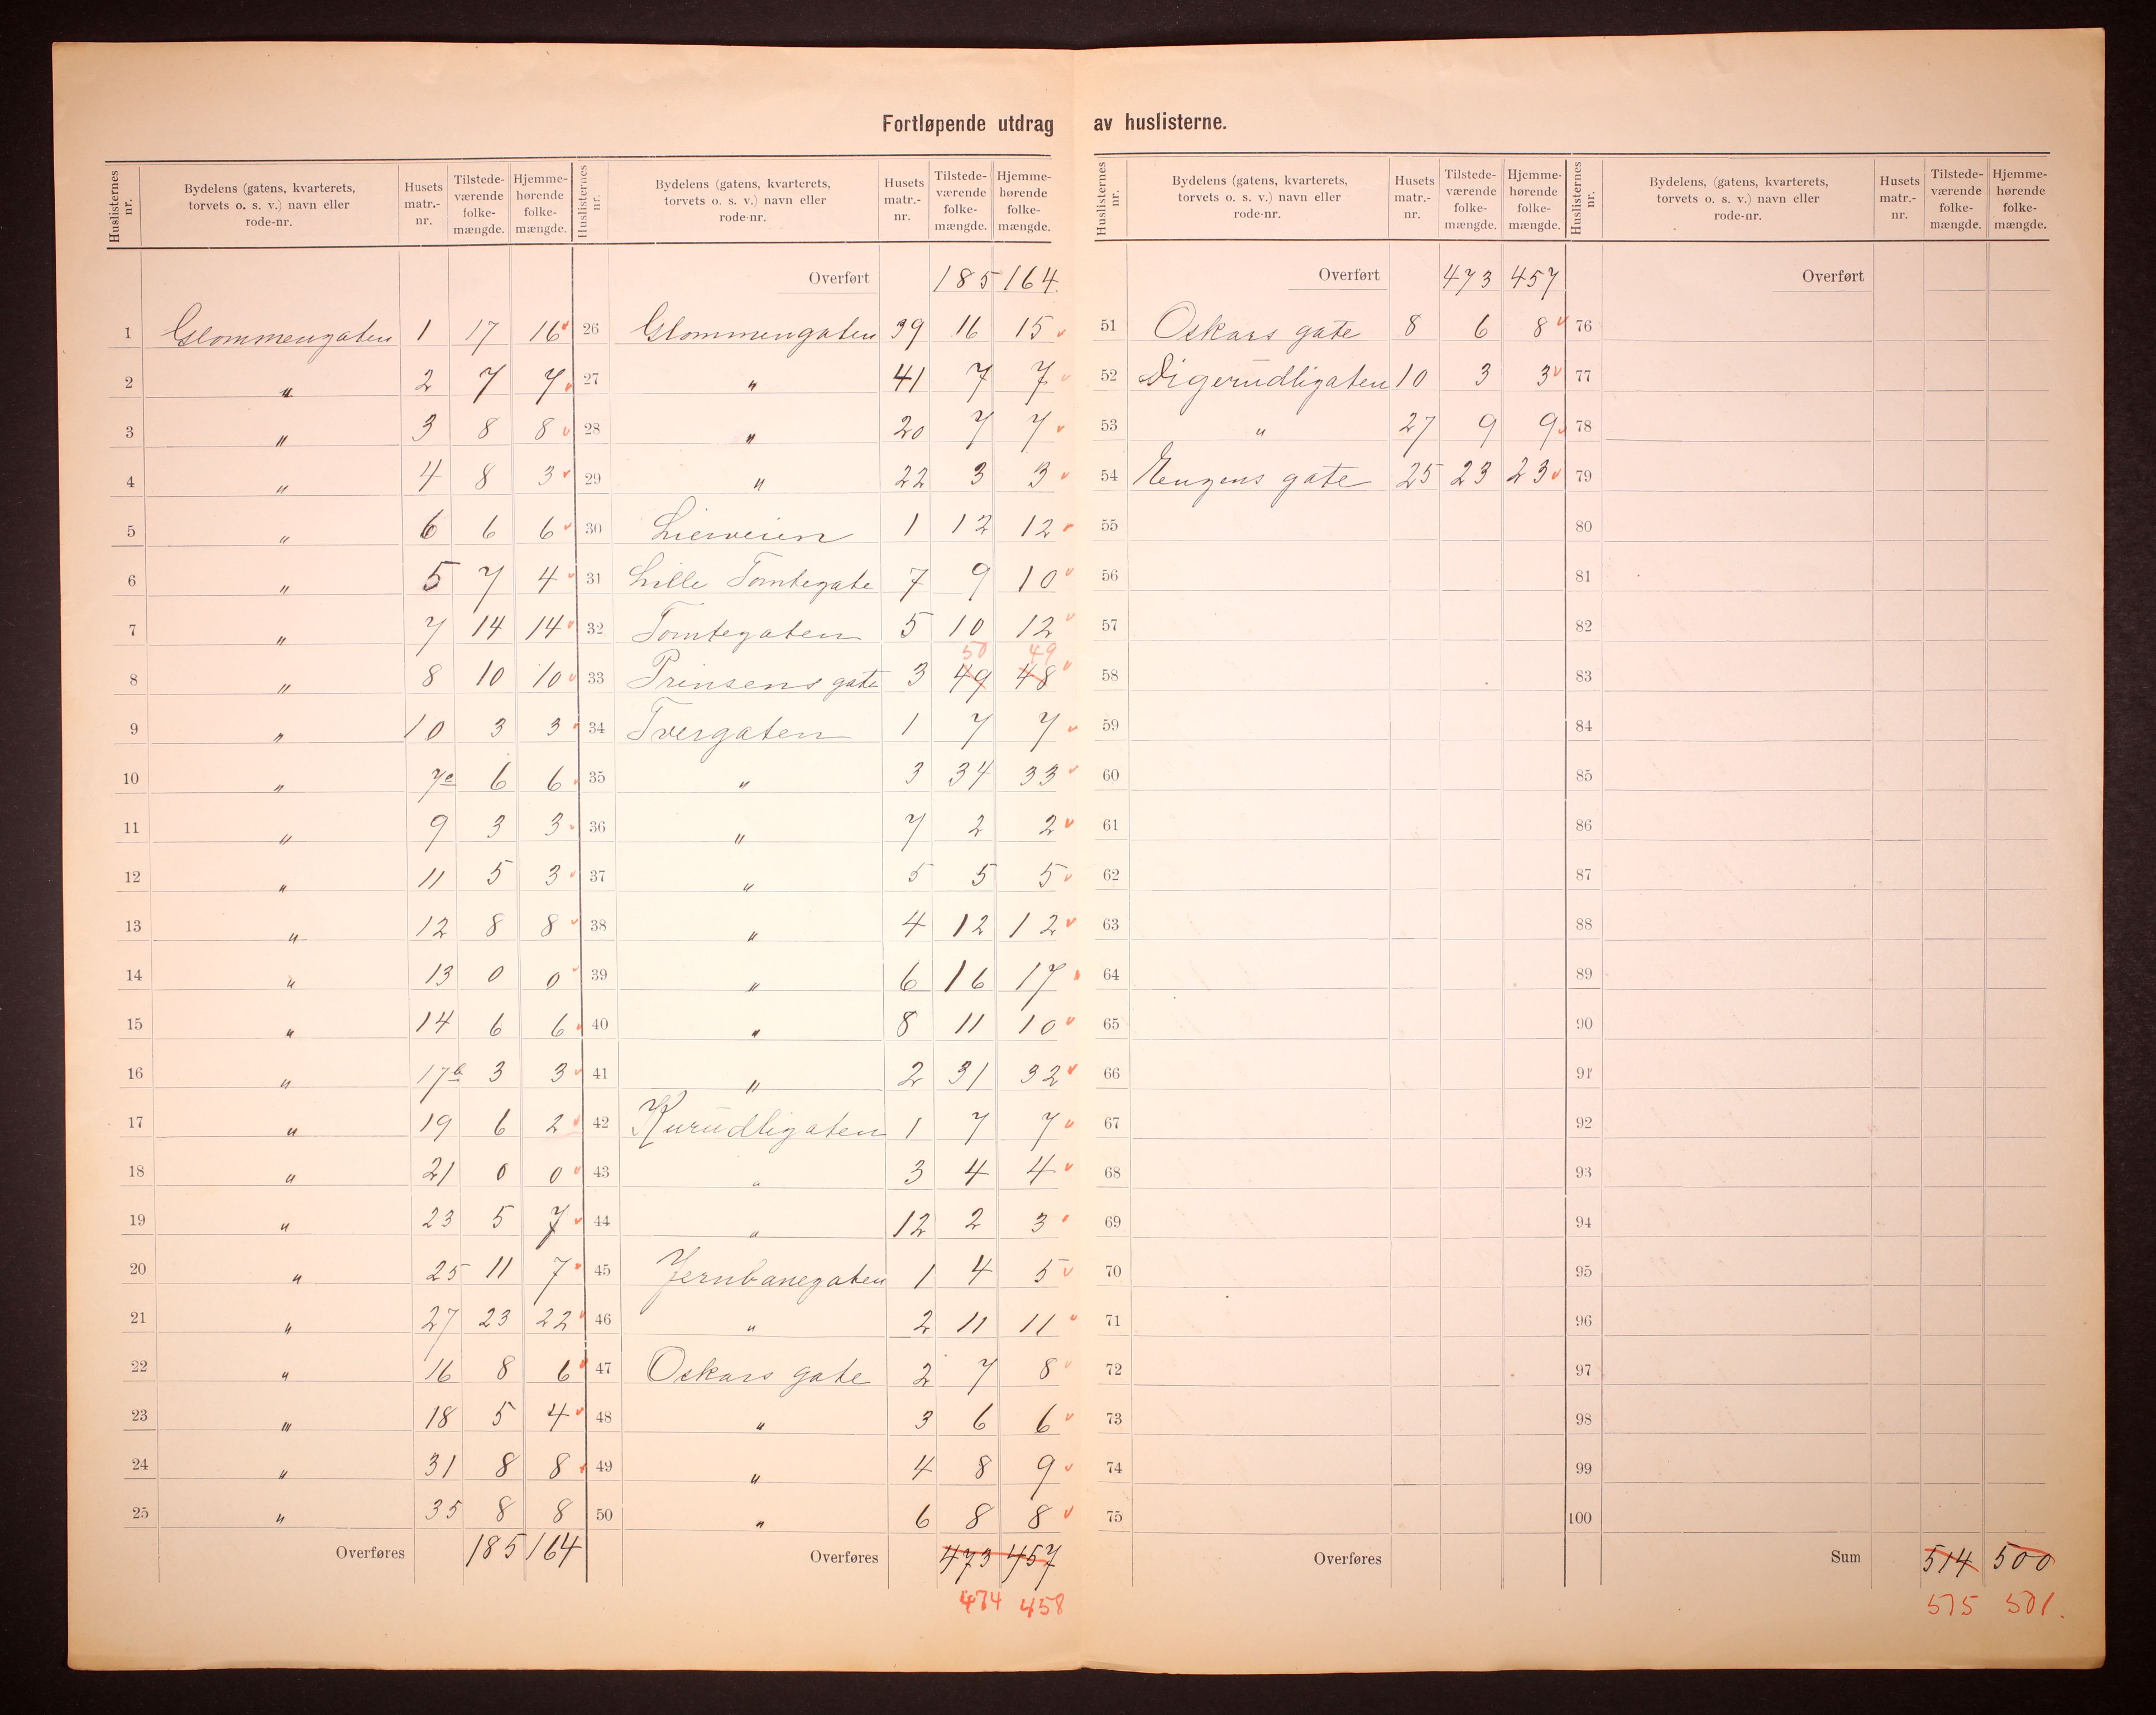 Fortløpende utdrag av huslisterne.
Huslisternes nr. | Bydelens (gatens, kvarterets, torvets o. s. v.) navn eller rode-nr. | Husets matr.-nr. | Tilstede-værende folke-mængde. | Hjemme-hørende folke-mængde.
1 Glommengaten 1 17 16
2 " 2 7 7
3 " 3 8 8
4 " 4 8 3
5 " 6 6 6
6 " 5 7 4
7 " 7 14 14
8 " 8 10 10
9 " 10 3 3
10 " 7a 6 6
11 " 9 3 3
12 " 11 5 3
13 " 12 8 8
14 " 13 0 0
15 " 14 6 6
16 " 17a 3 3
17 " 19 6 2
18 " 21 0 0
19 " 23 5 7
20 " 25 11 7
21 " 27 23 22
22 " 16 8 6
23 " 18 5 4
24 " 31 8 8
25 " 35 8 8
Overføres 185 164
Huslisternes nr. | Bydelens (gatens, kvarterets, torvets o. s. v.) navn eller rode-nr. | Husets matr.-nr. | Tilstede-værende folke-mængde. | Hjemme-hørende folke-mængde.
Overført 185 164.
26 Glommengaten 39 16 15
27 " 41 7 7
28 " 20 7 7
29 " 22 3 3
30 Lierveien 1 12 12
31 Lille Tomtegate 7 9 10
32 Tomtegaten 5 10 12
50 49
33 Prinsens gate 3 49 48
34 Tvergaten 1 7 7
35 " 3 34 33
36 " 7 2 2
37 " 5 5 5
38 " 4 12 12
39 " 6 16 17
40 " 8 11 10
41 " 2 31 32
42 Kurudligaten 1 7 7
43 " 3 4 4
44 " 12 2 3
45 Jernbanegaten 1 4 5
46 " 2 11 11
47 Oskars gate 2 7 8
48 " 3 6 6
49 " 4 8 9
50 " 6 8 8
Overføres 473 457
474 458
Huslisternes nr. | Bydelens (gatens, kvarterets, torvets o. s. v.) navn eller rode-nr. | Husets matr.-nr. | Tilstede-værende folke-mængde. | Hjemme-hørende folke-mængde.
Overført 473 457
51 Oskars gate 8 6 8
52 Digerudligaten 10 3 3
53 " 27 9 9
54 Eugens gate 25 23 23
55
56
57
58
59
60
61
62
63
64
65
66
67
68
69
70
71
72
73
74
75
Overføres
Huslisternes nr. | Bydelens, (gatens, kvarterets, torvets o. s. v.) navn eller rode-nr. | Husets matr.-nr. | Tilstede-værende folke-mængde. | Hjemme-hørende folke-mængde.
Overført
76
77
78
79
80
81
82
83
84
85
86
87
88
89
90
91
92
93
94
95
96
97
98
99
100
Sum 514 500
515 501.